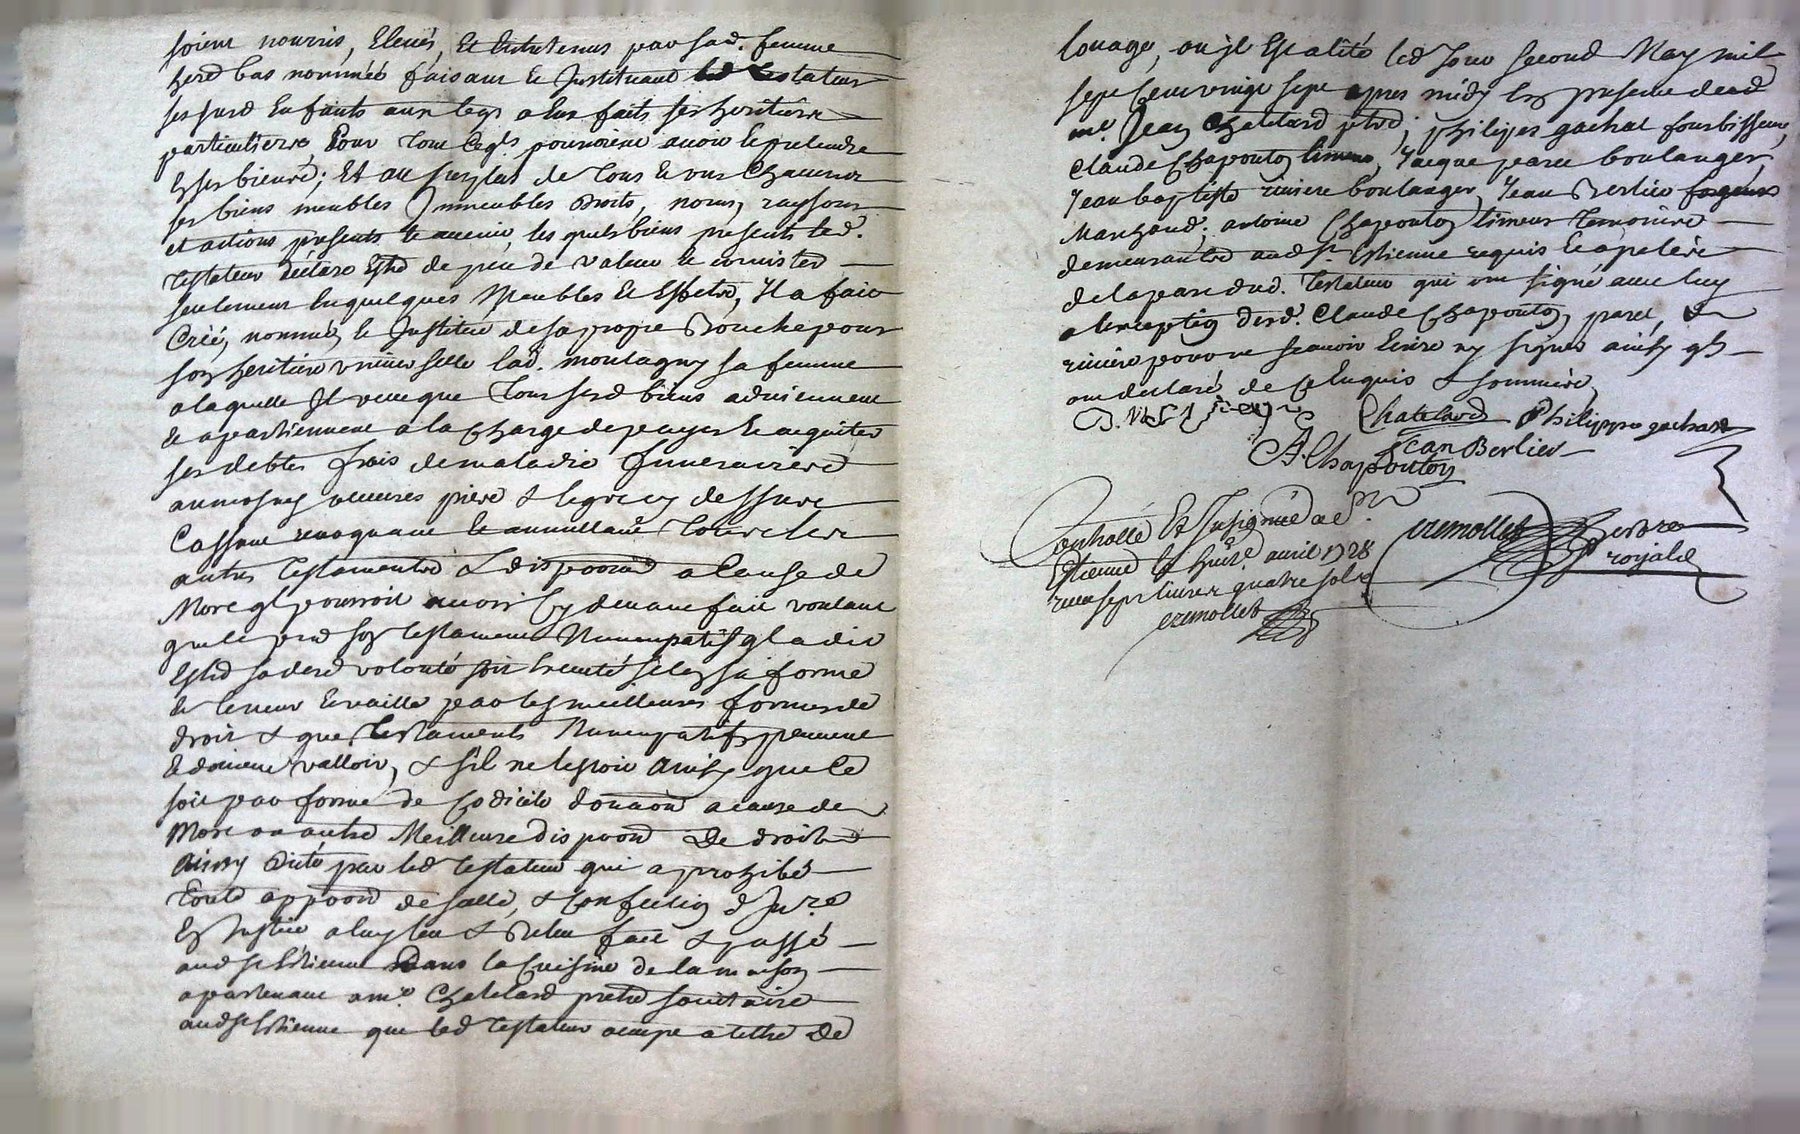 soient nourris, Elevés, Et Entretenus par sad. femme
herd bas nommée faisant & Instituant led testateur
sesd Enfants aux legs a eux faits ses heritiers
particuliers, pour tout ce qls pourroient avoir & pretendre
En ses biens; Et au surplus de tous & uns Chacuns
ses biens meubles Immeubles droits, noms, raysons
et actions presents & avenir, les quels biens presents led.
testateur declare Estre de peu de valeur & consister
seulement En quelques Meubles & Effets, Il a fait
Créé, nommé, & Institué de sa propre Bouche pour
son heritiere universelle lad. montagny sa femme
a laquelle Il veut que tous sesd biens adviennent
& apartiennent a la charge de payer & acquiter
ses debtes frais de maladie funeraires
aumosnes œuvres pies & legs cy dessus
Cassant revoquant & annullant tous ses
autres testaments & dispoons a Cause de
Mort ql pourroit avoir Cy devant fait voulant
que le pnt son testament Nuncupatif ql a dit
Estre sa dere volonté soit Executé selon sa forme
& teneur & vaille par les meilleures formes de
droit & que testaments Nuncupatifs peuvent
& doivent valloir, & s'il ne le soit ainsy que Ce
soit par forme de Codicile donaon a cause de
Mort ou autre Meilleure dispoon De droit
Ainsy dicté par led testateur qui a prohibé
toute appoon de sellé, & Confection d'Inre
En Justice a luy leu & releu fait & passé
aud St Estienne Dans la Cuisine de la maison
apartenant a me. Chatelard pretre societaire
aud St Estienne que led testateur occupe a tiltre De
louage, ou jl Est alité led Jour second May mil
sept Cent vingt sept apres midy En presence dud
me. Jean Chatelard ptre, philipes gachat fourbisseur,
Claude Chaponton limeur, Jacque parel boulanger,
Jean baptiste riviere boulanger, Jean Berlier
Marchand, antoine Chaponton limeur temoins
demeurants aud St. Estienne requis & apelés
de la part dud. testateur qui ont signé avec luy
a l'exception desd. Claude Chaponton, parel, &
riviere pour ne scavoir Ecrire ny signer ainsy qls
ont declaré de Ce Enquis & sommés
Chatelard Philippe gachat
Jean Berlier
A. Chaponton
Controllé Et Insignué a St
Etienne le huit. avril 1728
receu sept livres quatre sols
cremollet
cremollet
royal